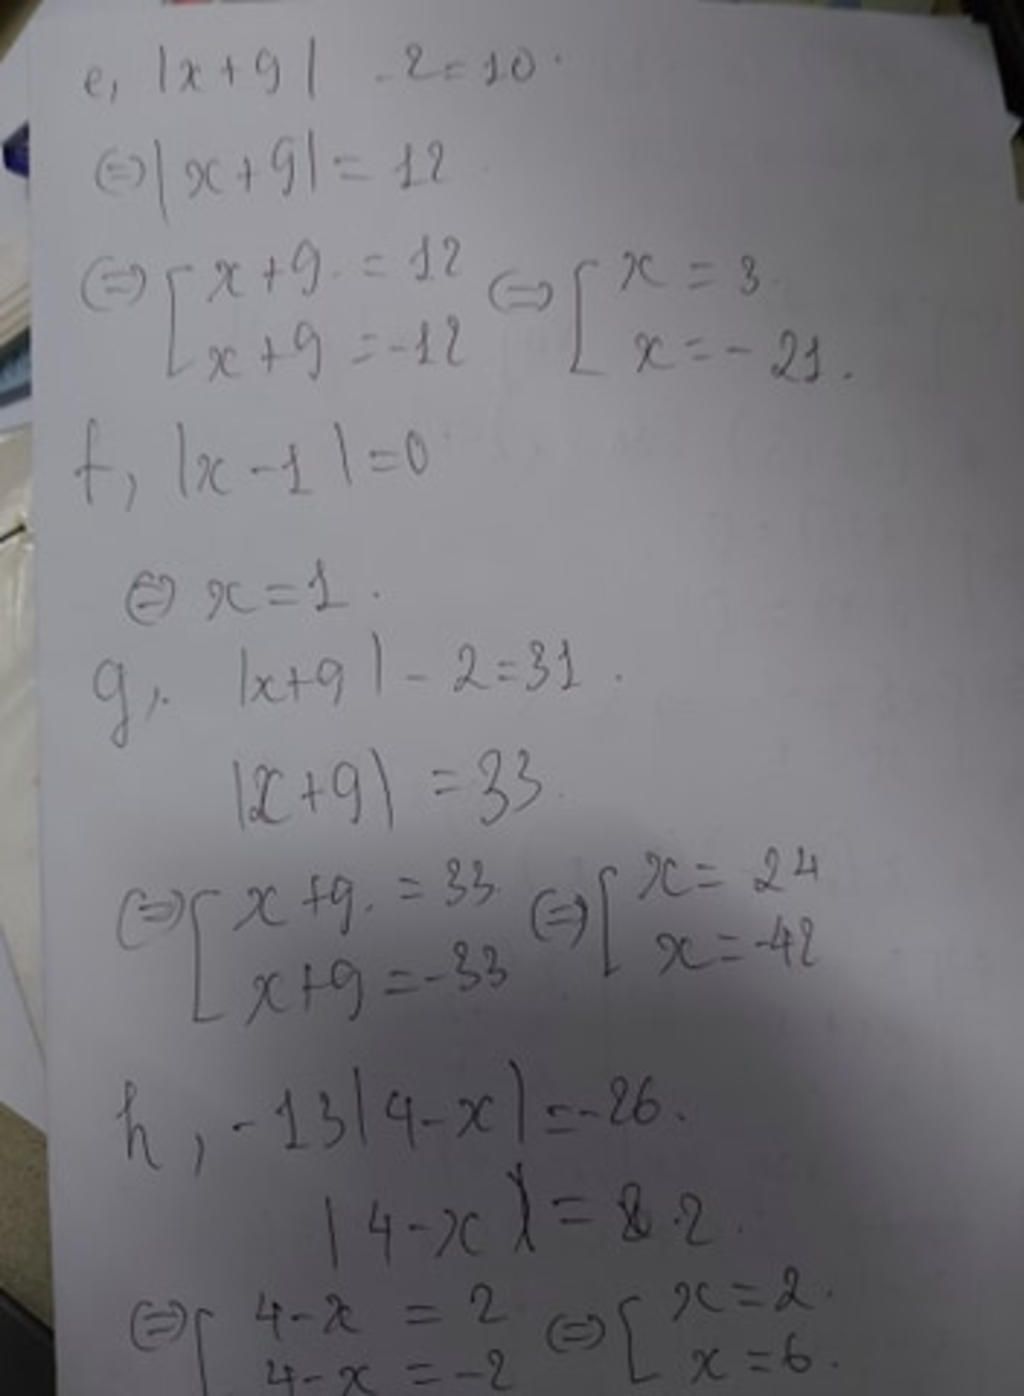 e, |x+9| - 2 = 10.
⇔ |x+9| = 12
⇔ [ x+9 = 12 ⇔ [ x = 3
x+9 = -12 x = -21.
f, |x-1| = 0
⇔ x = 1.
g, |x+9| - 2 = 31.
|x+9| = 33
⇔ [ x+9 = 33 ⇔ [ x = 24
x+9 = -33 x = -42
h, -13|4-x| = -26.
|4-x| = 2
⇔ [ 4-x = 2 ⇔ [ x = 2.
4-x = -2 x = 6.